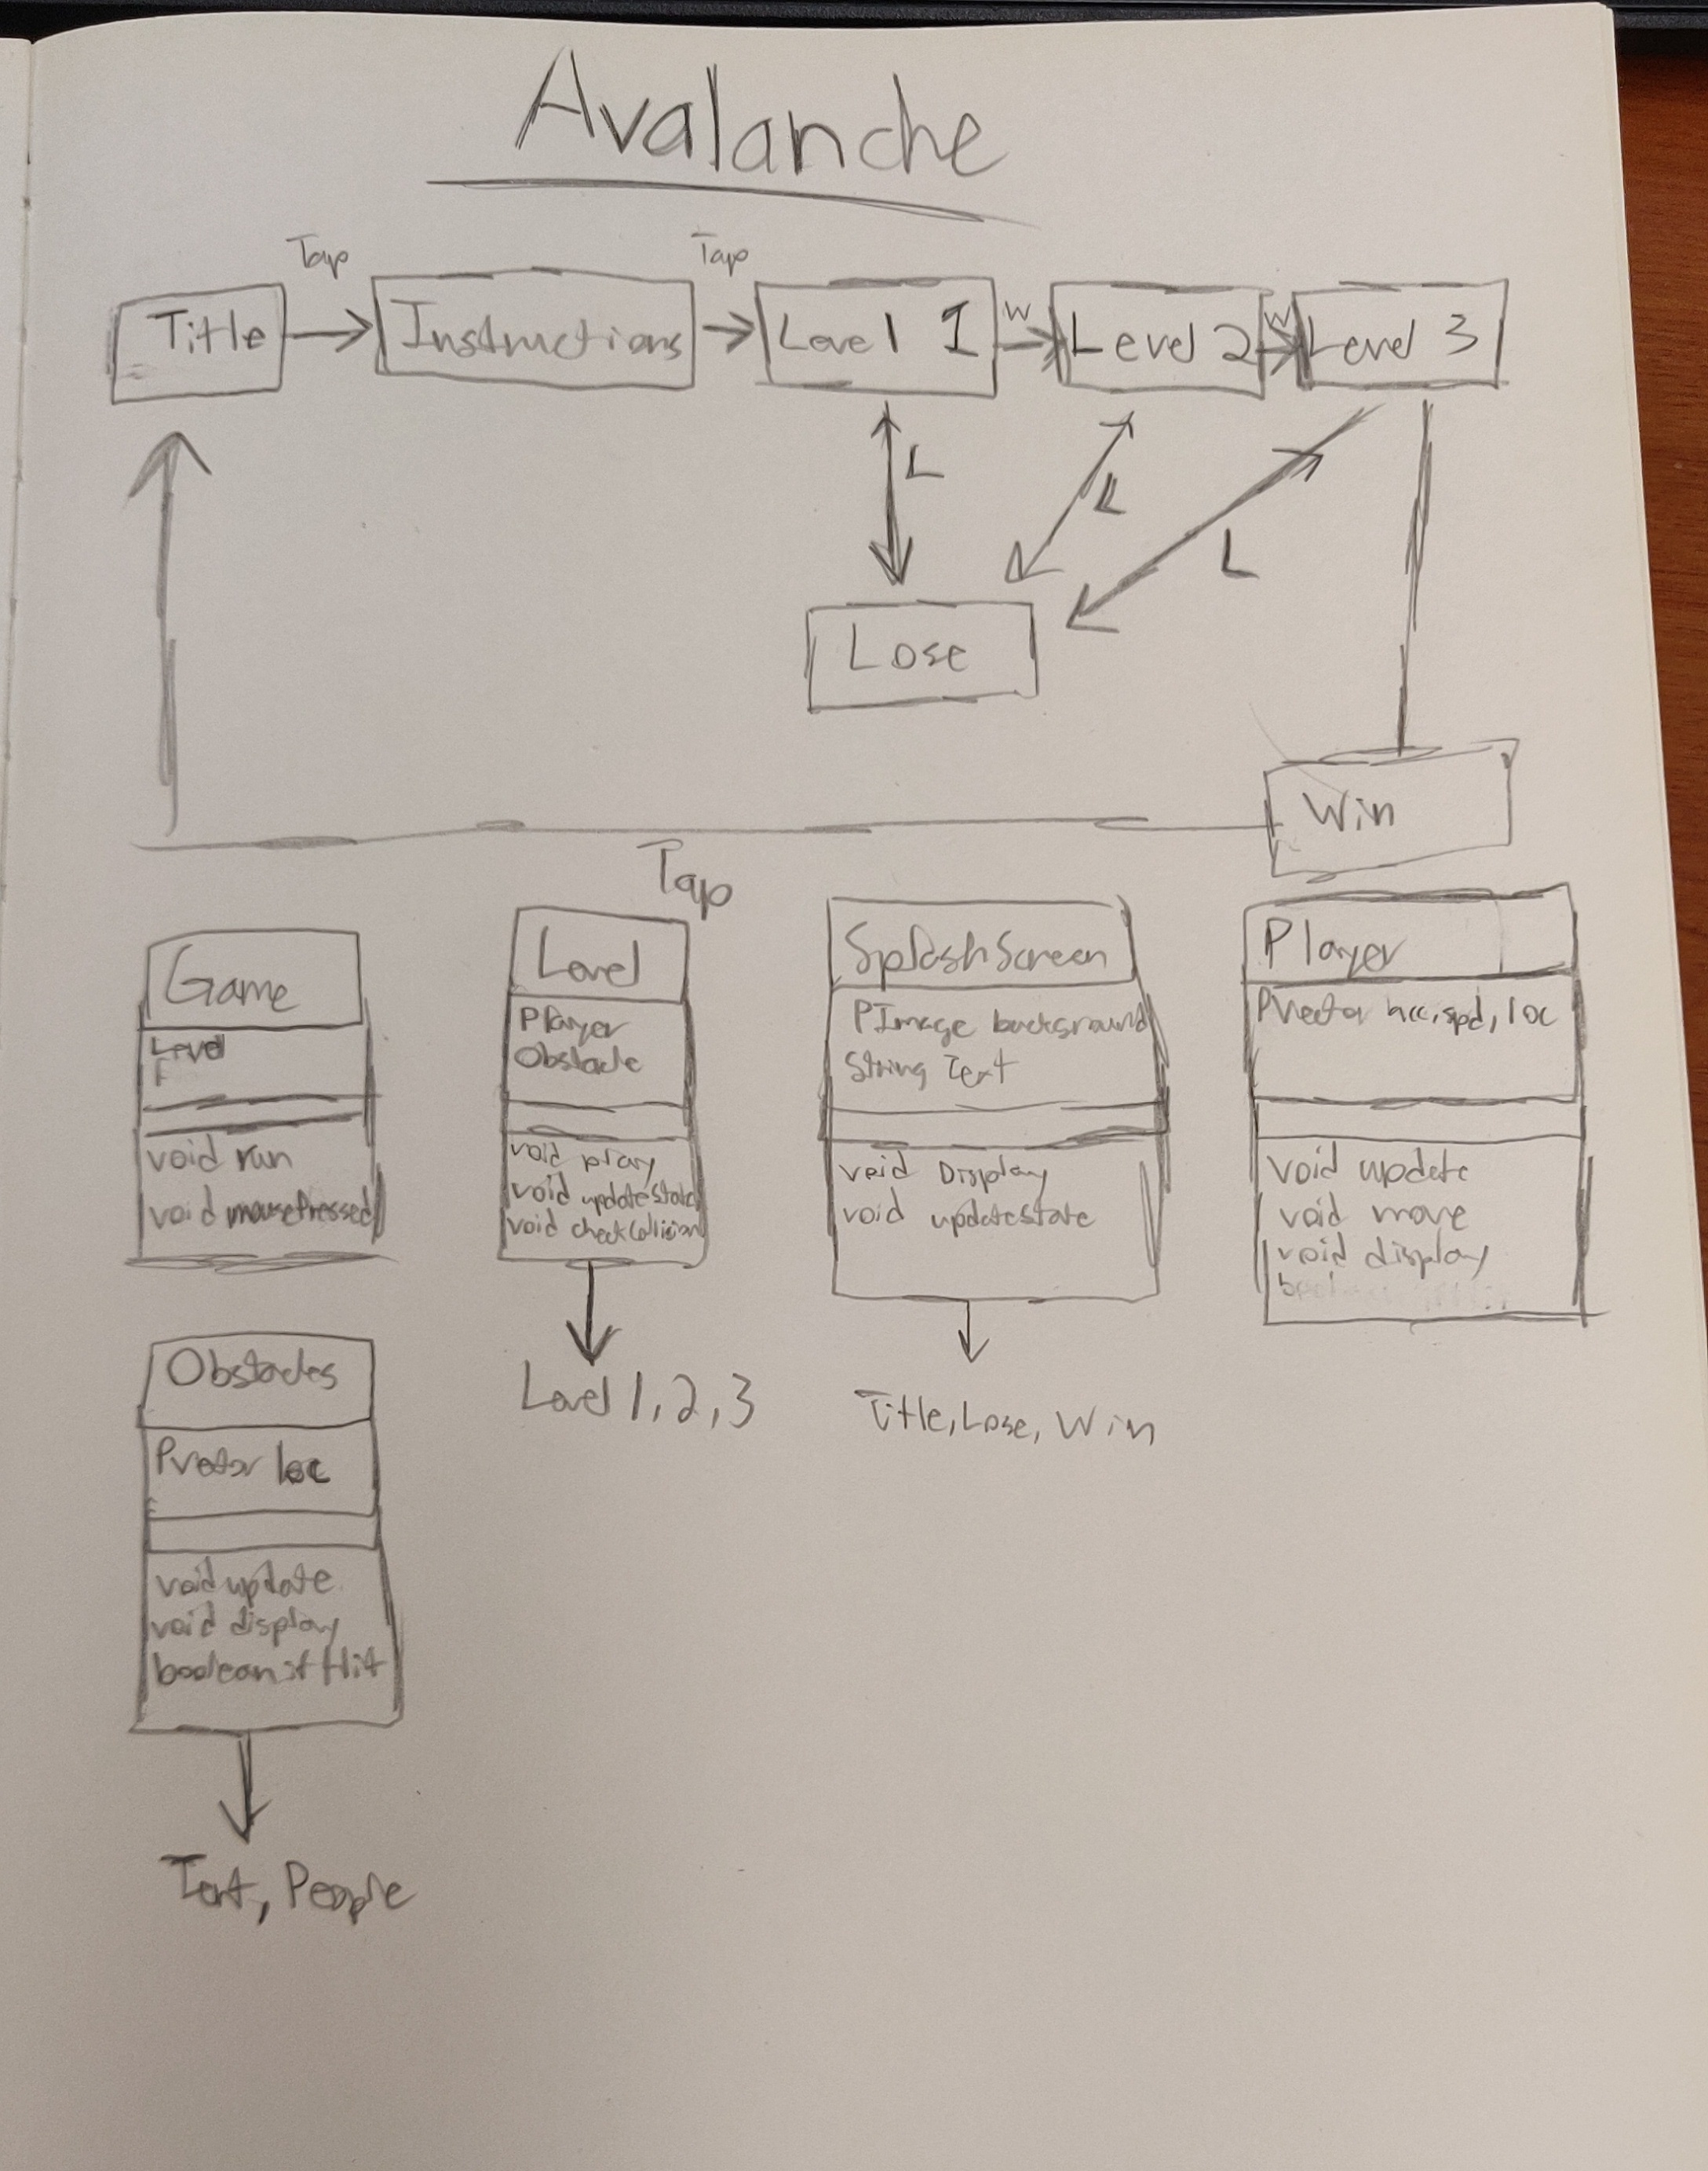 Avalanche
Tap
Tap
Title
Instructions
Level 1
W
Level 2
W
Level 3
L
L
L
Lose
Win
Tap
Game
Level
void run
void mousePressed
Level
Player
Obstacle
void play
void updateState
void checkCollision
Level 1, 2, 3
SplashScreen
PImage background
String Text
void Display
void updatestate
Title, Lose, Win
Player
PVector acc, spd, loc
void update
void move
void display
Obstacles
PVector loc
void update
void display
boolean if Hit
People